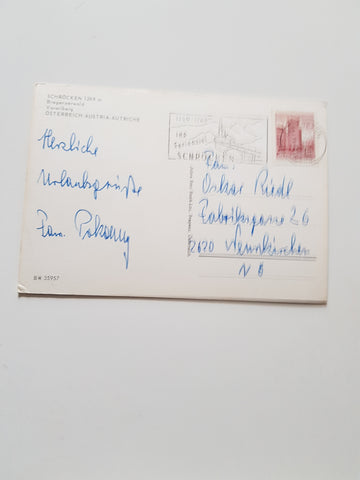 SCHRÖCKEN 1269 m
Bregenzerwald
Vorarlberg
ÖSTERREICH-AUSTRIA-AUTRICHE
Herzliche
Urlaubsgrüße
Fam. Pokorny
BR 35957
Ihr
Ferienziel
SCHRÖCKEN
Fam.
Oskar Riedl
Fabriksgasse 26
2620 Neunkirchen
NÖ